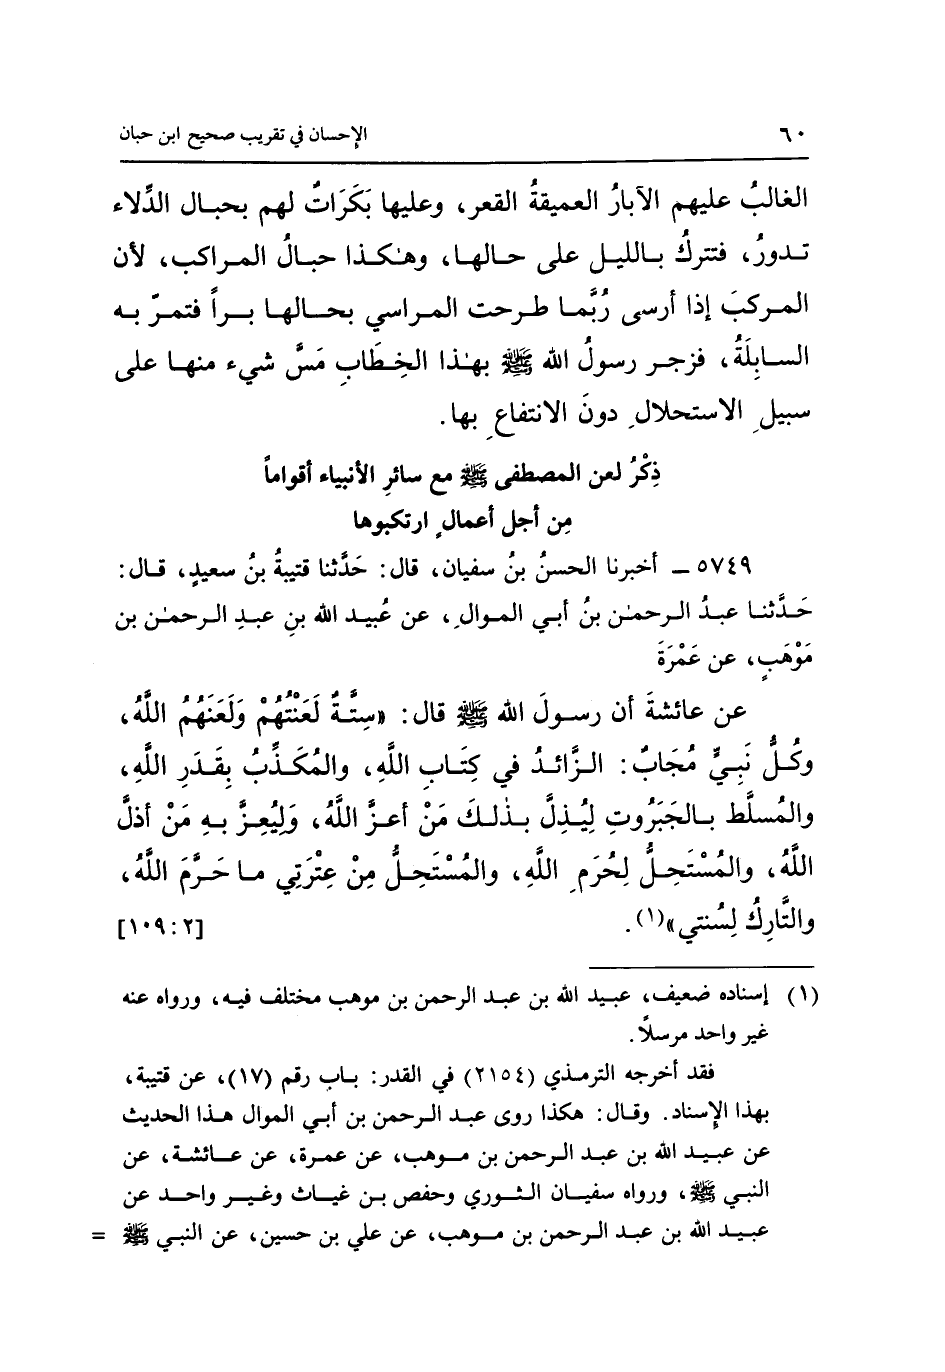 ٦٠ الإحسان في تقريب صحيح ابن حبان
الغالبُ عليهم الآبارُ العميقةُ القعر، وعليها بَكَرَاتٌ لهم بحبال الدِّلاء
تدورُ، فتتركُ بالليل على حالها، وهٰكذا حبالُ المراكب، لأن
المركبَ إذا أرسى رُبَّما طرحت المراسي بحالها براً فتمرّ به
السابِلَةُ، فزجر رسولُ الله ﷺ بهٰذا الخِطَابِ مَسَّ شيء منها على
سبيلِ الاستحلالِ دونَ الانتفاعِ بها.
ذِكْرُ لعن المصطفى ﷺ مع سائرِ الأنبياء أقواماً
مِن أجل أعمالٍ ارتكبوها
٥٧٤٩ ـ أخبرنا الحسنُ بنُ سفيان، قال: حَدَّثنا قتيبةُ بنُ سعيدٍ، قال:
حَدَّثنا عبدُ الرحمٰن بنُ أبي الموالِ، عن عُبيد الله بنِ عبدِ الرحمٰن بن
مَوْهَبٍ، عن عَمْرَةَ
عن عائشةَ أن رسولَ الله ﷺ قال: «سِتَّةٌ لَعَنْتُهُمْ وَلَعَنَهُمُ اللَّهُ،
وكُلُّ نَبِيٍّ مُجَابٌ: الزَّائدُ في كِتَابِ اللَّهِ، والمُكَذِّبُ بِقَدَرِ اللَّهِ،
والمُسلَّط بالجَبَرُوتِ لِيُذِلَّ بذٰلكَ مَنْ أعزَّ اللَّهُ، وَلِيُعِزَّ بِهِ مَنْ أذلَّ
اللَّهُ، والمُسْتَحِلُّ لِحُرَمِ اللَّهِ، والمُسْتَحِلُّ مِنْ عِتْرَتِي ما حَرَّمَ اللَّهُ،
والتَّارِكُ لِسُنتي»(١). [٢: ١٠٩]
(١) إسناده ضعيف، عبيد الله بن عبد الرحمن بن موهب مختلف فيه، ورواه عنه
غير واحد مرسلاً.
فقد أخرجه الترمذي (٢١٥٤) في القدر: باب رقم (١٧)، عن قتيبة،
بهذا الإسناد. وقال: هكذا روى عبد الرحمن بن أبي الموال هذا الحديث
عن عبيد الله بن عبد الرحمن بن موهب، عن عمرة، عن عائشة، عن
النبي ﷺ، ورواه سفيان الثوري وحفص بن غياث وغير واحد عن
عبيد الله بن عبد الرحمن بن موهب، عن علي بن حسين، عن النبي ﷺ =